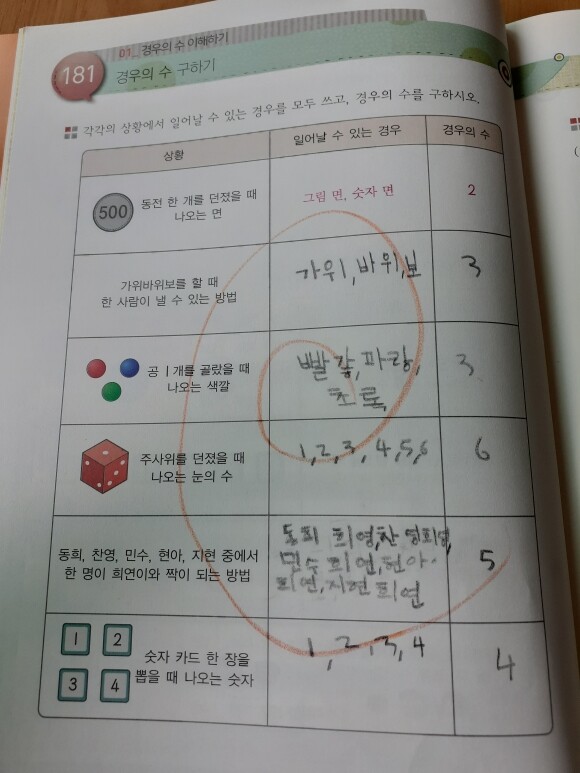 01_ 경우의 수 이해하기
181 경우의 수 구하기
각각의 상황에서 일어날 수 있는 경우를 모두 쓰고, 경우의 수를 구하시오.
상황 일어날 수 있는 경우 경우의 수
500 동전 한 개를 던졌을 때
나오는 면
그림 면, 숫자 면 2
가위바위보를 할 때
한 사람이 낼 수 있는 방법
가위, 바위, 보 3
공 1개를 골랐을 때
나오는 색깔
빨강, 파랑,
초록 3
주사위를 던졌을 때
나오는 눈의 수
1, 2, 3, 4, 5, 6 6
동희, 찬영, 민수, 현아, 지현 중에서
한 명이 희연이와 짝이 되는 방법
동희
민수 희연, 현아
희연, 지현 희연
5
1 2
3 4
숫자 카드 한 장을
뽑을 때 나오는 숫자
1, 2, 3, 4 4